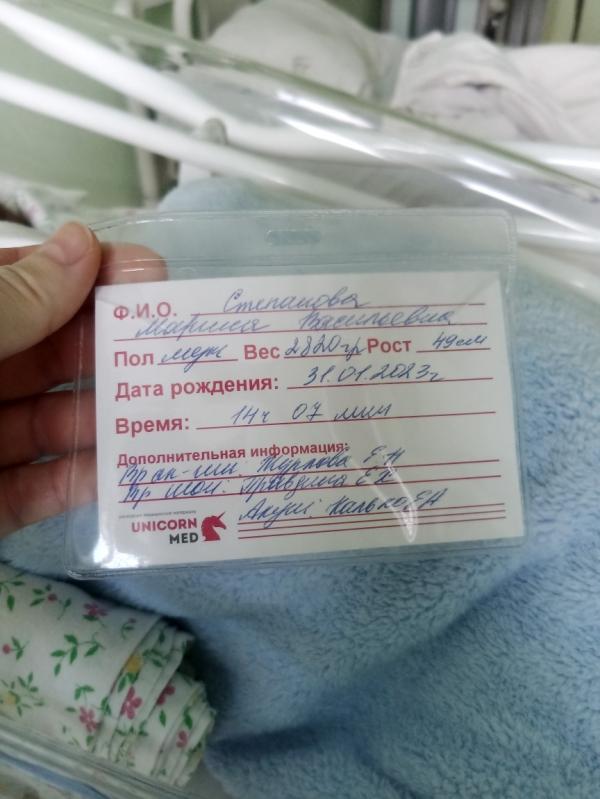 Ф.И.О. Степанова
Марина Васильевна
Пол муж Вес 2820гр Рост 49см
Дата рождения: 31.01.2023г
Время: 14ч 07 мин
Дополнительная информация:
Вр ак-гин: Е.Н
Вр Правдина Е
Акуш: Калько Е.Н
UNICORN
MED